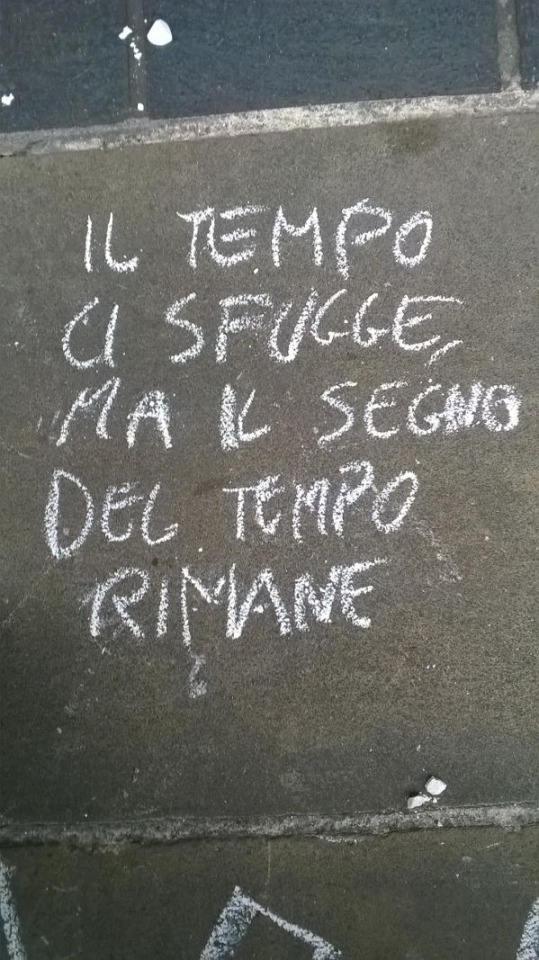 IL TEMPO
CI SFUGGE,
MA IL SEGNO
DEL TEMPO
RIMANE